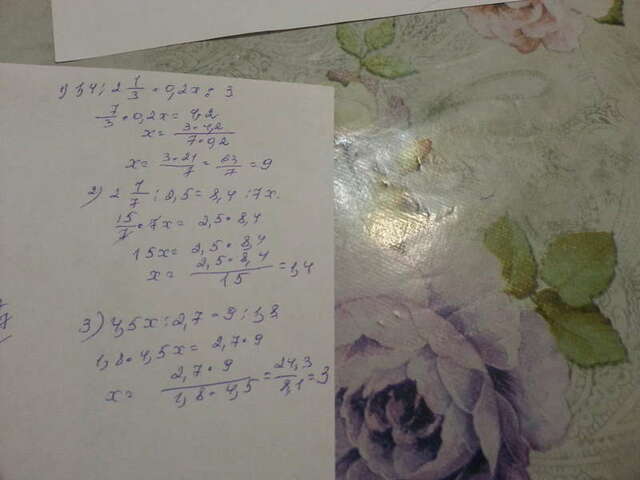 1) 1,4 : 2 1/3 = 0,2x : 3
7/3 • 0,2x = 4,2
x = 3•4,2 / 7•0,2
x = 3•21 / 7 = 63/7 = 9
2) 2 1/7 : 2,5 = 8,4 : 7x
15/7 • 7x = 2,5 • 8,4
15x = 2,5 • 8,4
x = 2,5 • 8,4 / 15 = 1,4
3) 4,5x : 2,7 = 9 : 1,8
1,8 • 4,5x = 2,7 • 9
x = 2,7 • 9 / 1,8 • 4,5 = 24,3 / 8,1 = 3